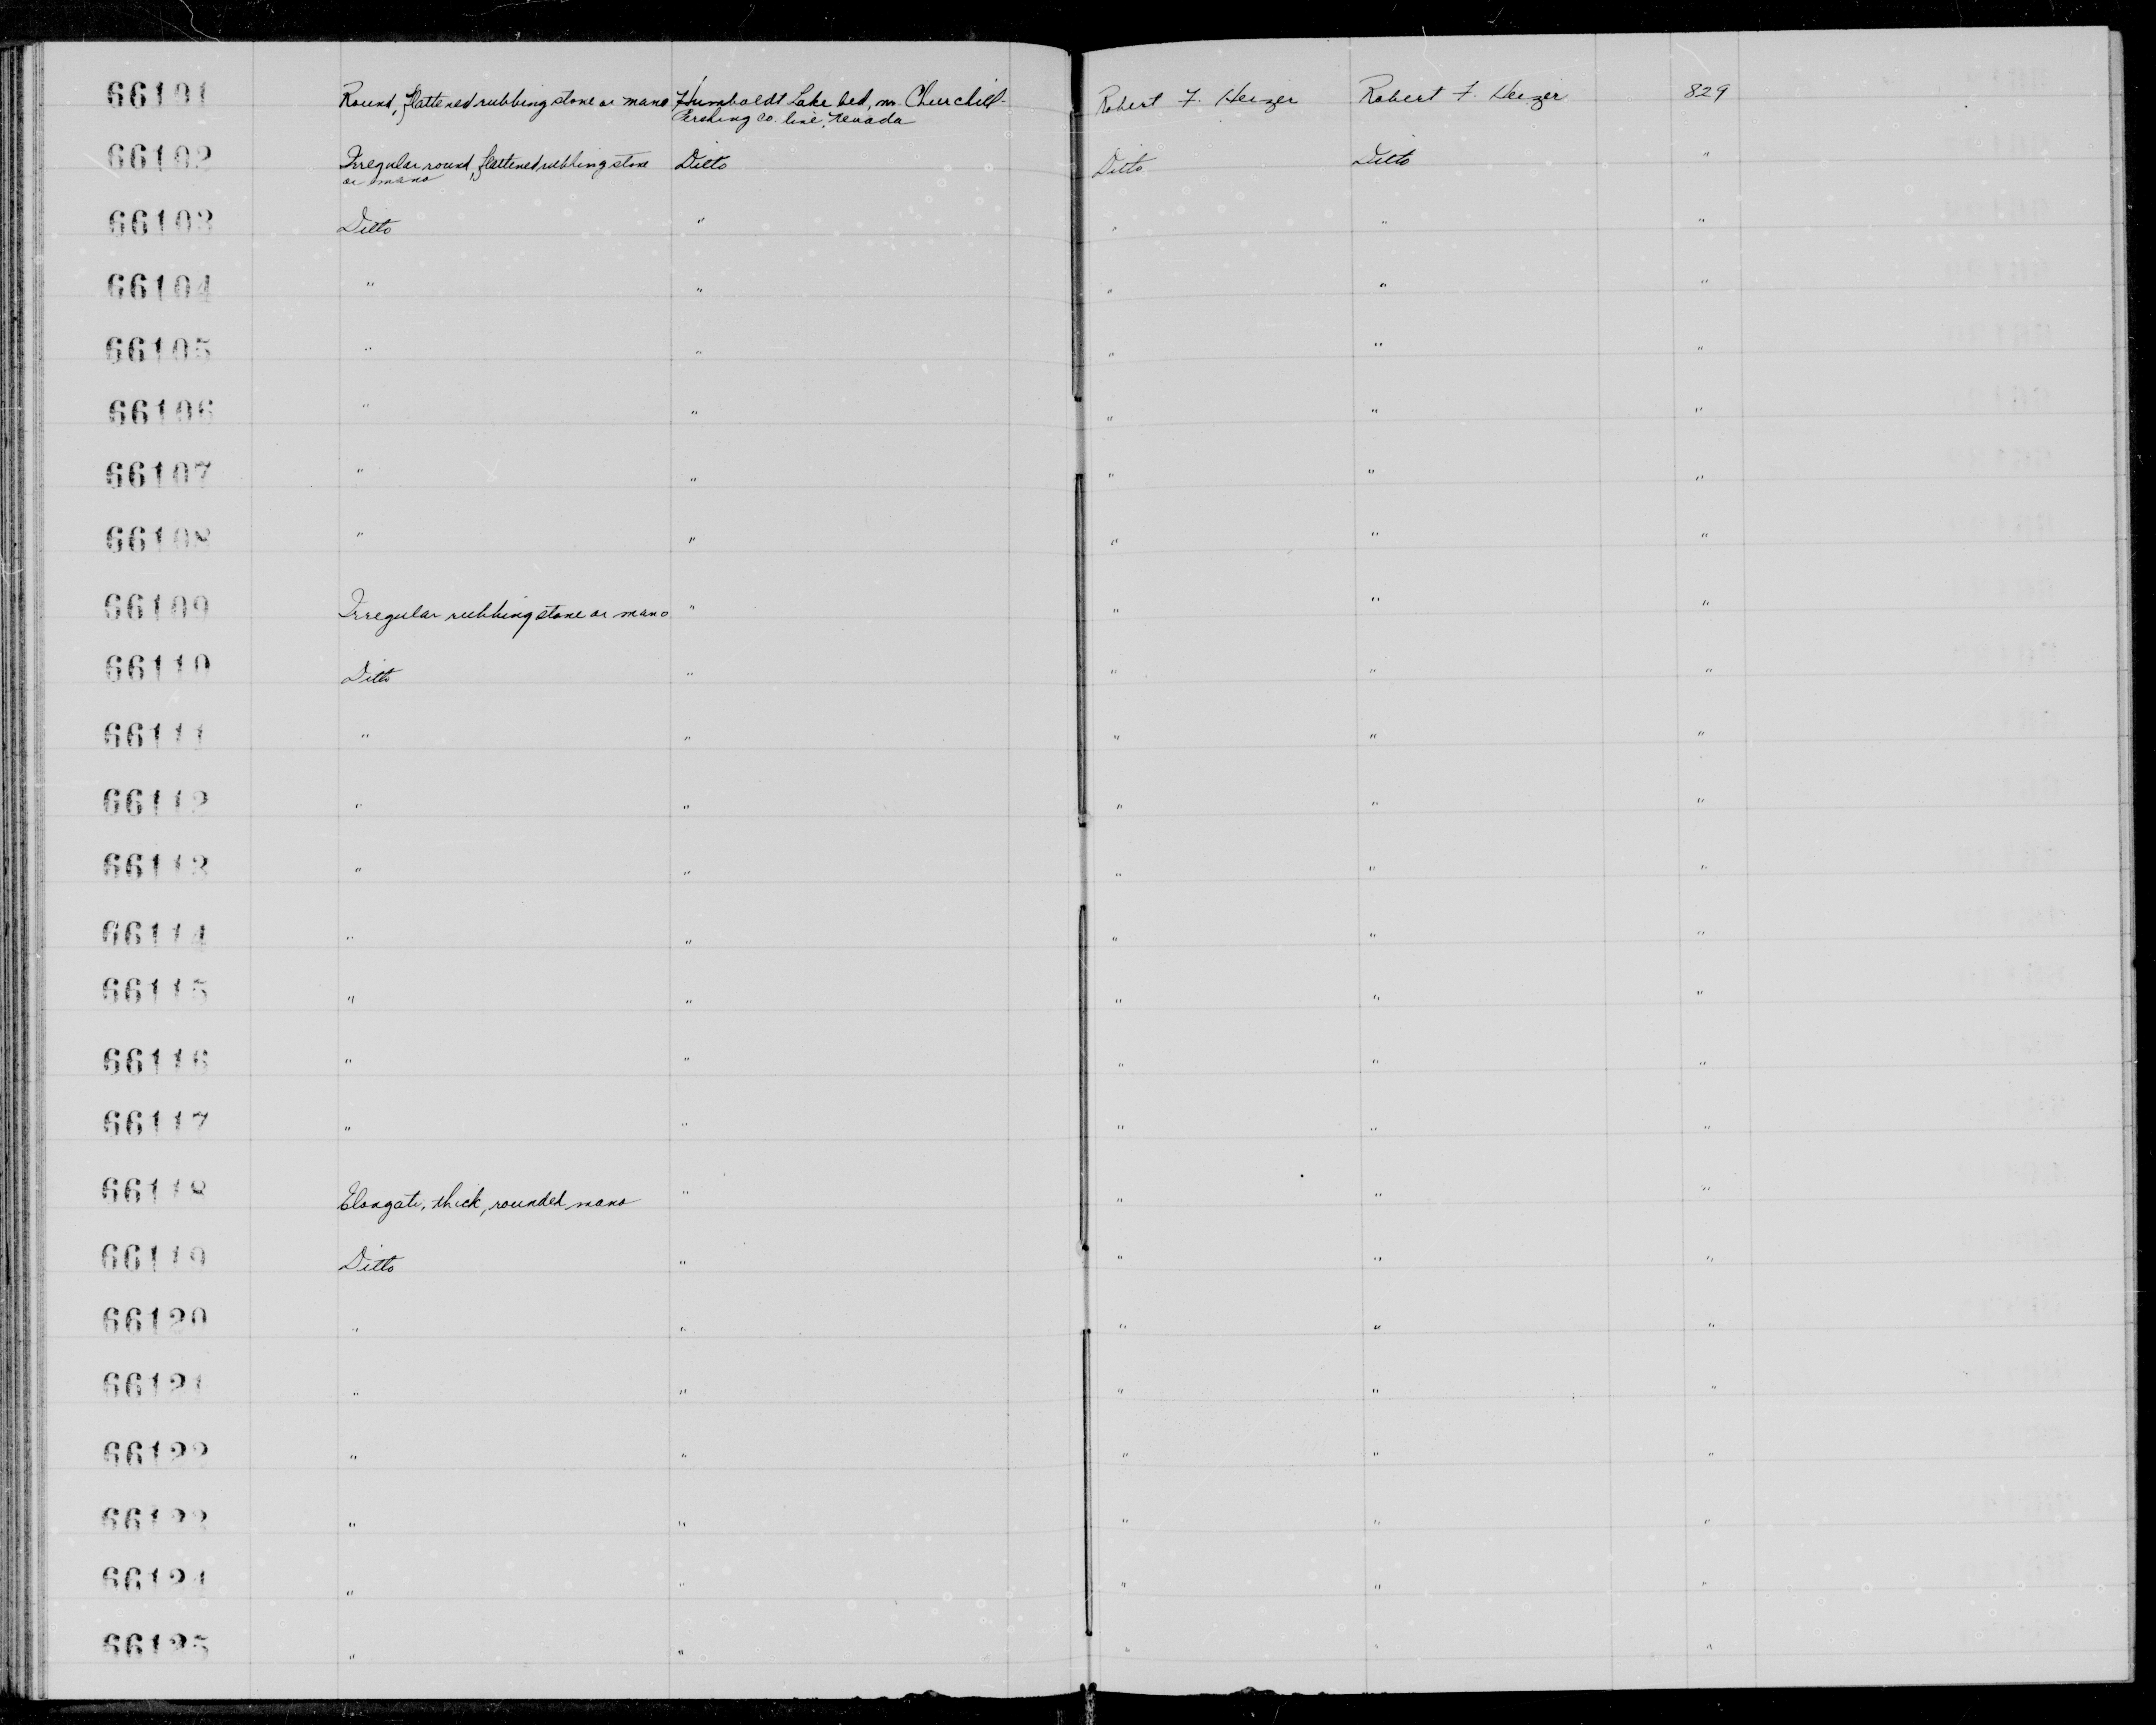 66101 Round, flattened rubbing stone or mano Humboldt Lake bed, nr. Churchill- Robert F. Heizer Robert F. Heizer 829
Pershing Co. line, Nevada
66102 Irregular round, flattened rubbing stone Ditto Ditto Ditto "
or mano
66103 Ditto " " " "
66104 " " " " "
66105 " " " " "
66106 " " " " "
66107 " " " " "
66108 " " " " "
66109 Irregular rubbing stone or mano " " " "
66110 Ditto " " " "
66111 " " " " "
66112 " " " " "
66113 " " " " "
66114 " " " " "
66115 " " " " "
66116 " " " " "
66117 " " " " "
66118 Elongate, thick, rounded mano " " " "
66119 Ditto " " " "
66120 " " " " "
66121 " " " " "
66122 " " " " "
66123 " " " " "
66124 " " " " "
66125 " " " " "